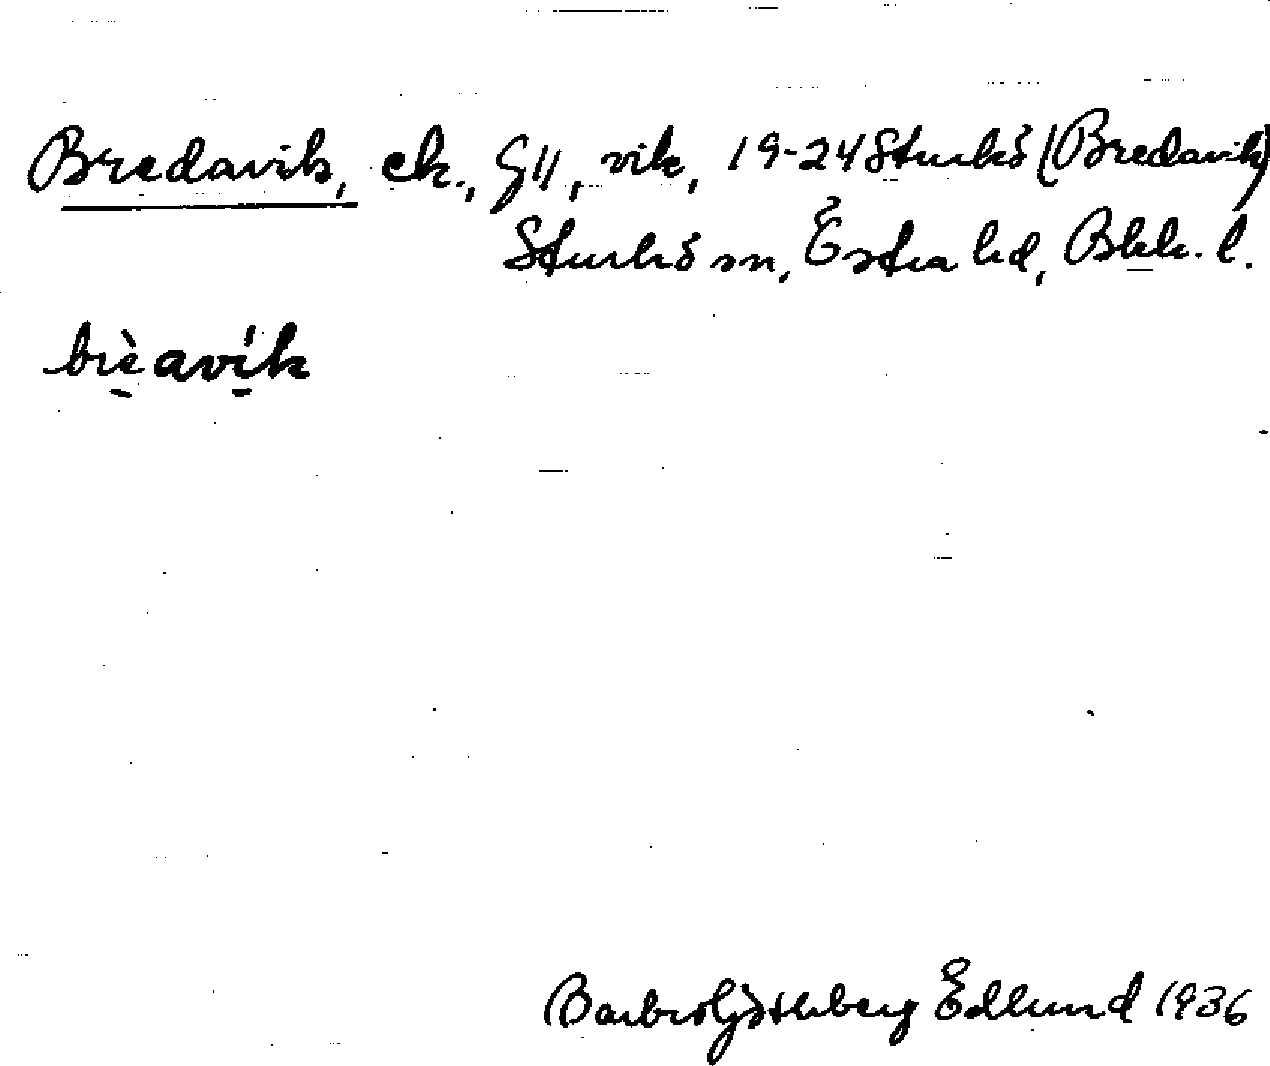 Bredavik, ek., GII, vik, 19-24 Sturkö (Bredavik)
Sturkö sn, Östra hd, Blek. l.
brèavík
Barbro Götheberg Edlund 1936